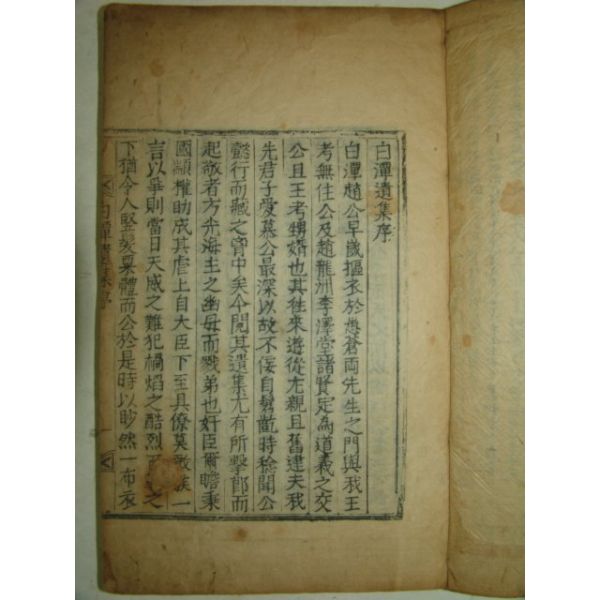 白潭遺集序
白潭趙公早歲摳衣於愚蒼兩先生之門與我王
考無住公及趙龍洲李澤堂諸賢定爲道義之交
公且王考甥婿也其往來遊從尤親且舊逮夫我
先君子愛慕公最深以故不佞自髫齔時稔聞公
懿行而藏之胷中矣今閱其遺集尤有所擊節而
起敬者方光海主之幽母而戮弟也奸臣爾瞻秉
國顓權助成其虐上自大臣下至具僚莫敢發一
言以爭則當日天威之難犯禍焰之酷烈 之
下猶令人竪髮粟體而公於是時以眇然一布衣
白潭遺集序